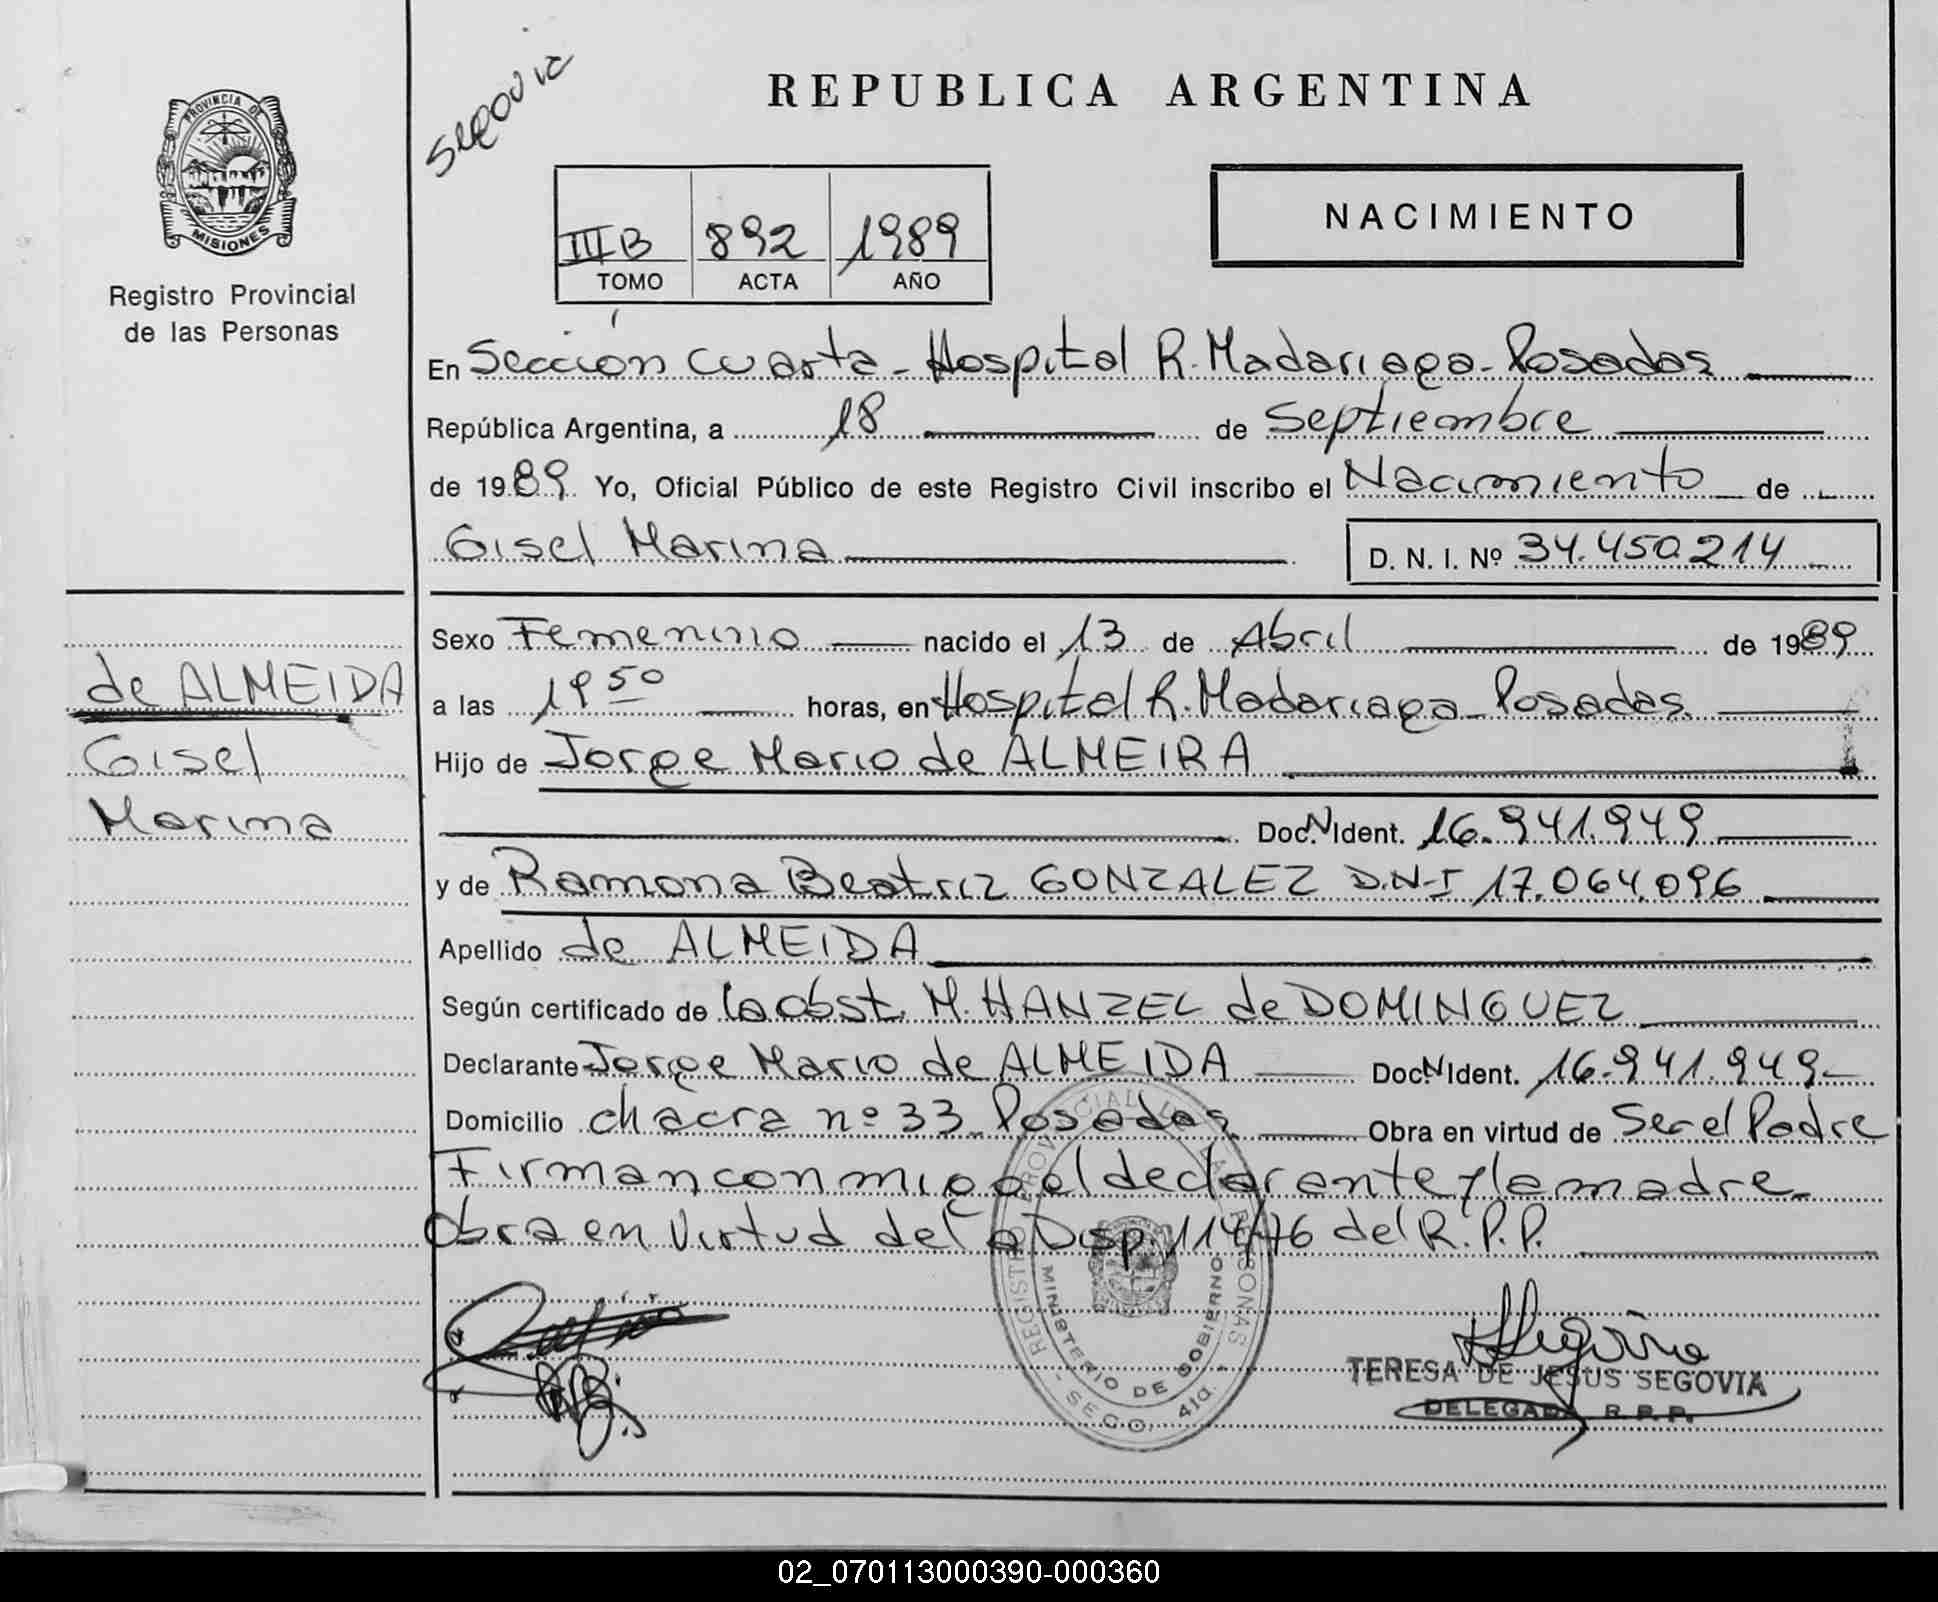 Segovia
REPUBLICA ARGENTINA
PROVINCIA DE
MISIONES
Registro Provincial
de las Personas
III B 892 1989
TOMO ACTA AÑO
NACIMIENTO
En Sección Cuarta - Hospital R. Madariaga - Posadas
República Argentina, a 18 de Septiembre
de 1989 Yo, Oficial Público de este Registro Civil inscribo el Nacimiento de
Gisel Marina
D. N. I. Nº 34.450.214
de ALMEIDA
Gisel
Marina
Sexo Femenino nacido el 13 de Abril de 1989
a las 19 50 horas, en Hospital R. Madariaga - Posadas
Hijo de Jorge Mario de ALMEIRA
Doc. N Ident. 16.941.949
y de Ramona Beatriz GONZALEZ D.N.I 17.064.096
Apellido de ALMEIDA
Según certificado de la obst. M. HANZEL de DOMINGUEZ
Declarante Jorge Mario de ALMEIDA Doc. N Ident. 16.941.949-
Domicilio chacra nº 33 Posadas Obra en virtud de Ser el Padre
Firman conmigo el declarante y la madre
Obra en Virtud de la Disp. 114/76 del R.P.P.
REGISTRO PROVINCIAL DE LAS PERSONAS
MINISTERIO DE GOBIERNO
- SECC. 4ta. -
TERESA DE JESUS SEGOVIA
DELEGADA R.P.P.
02_070113000390-000360